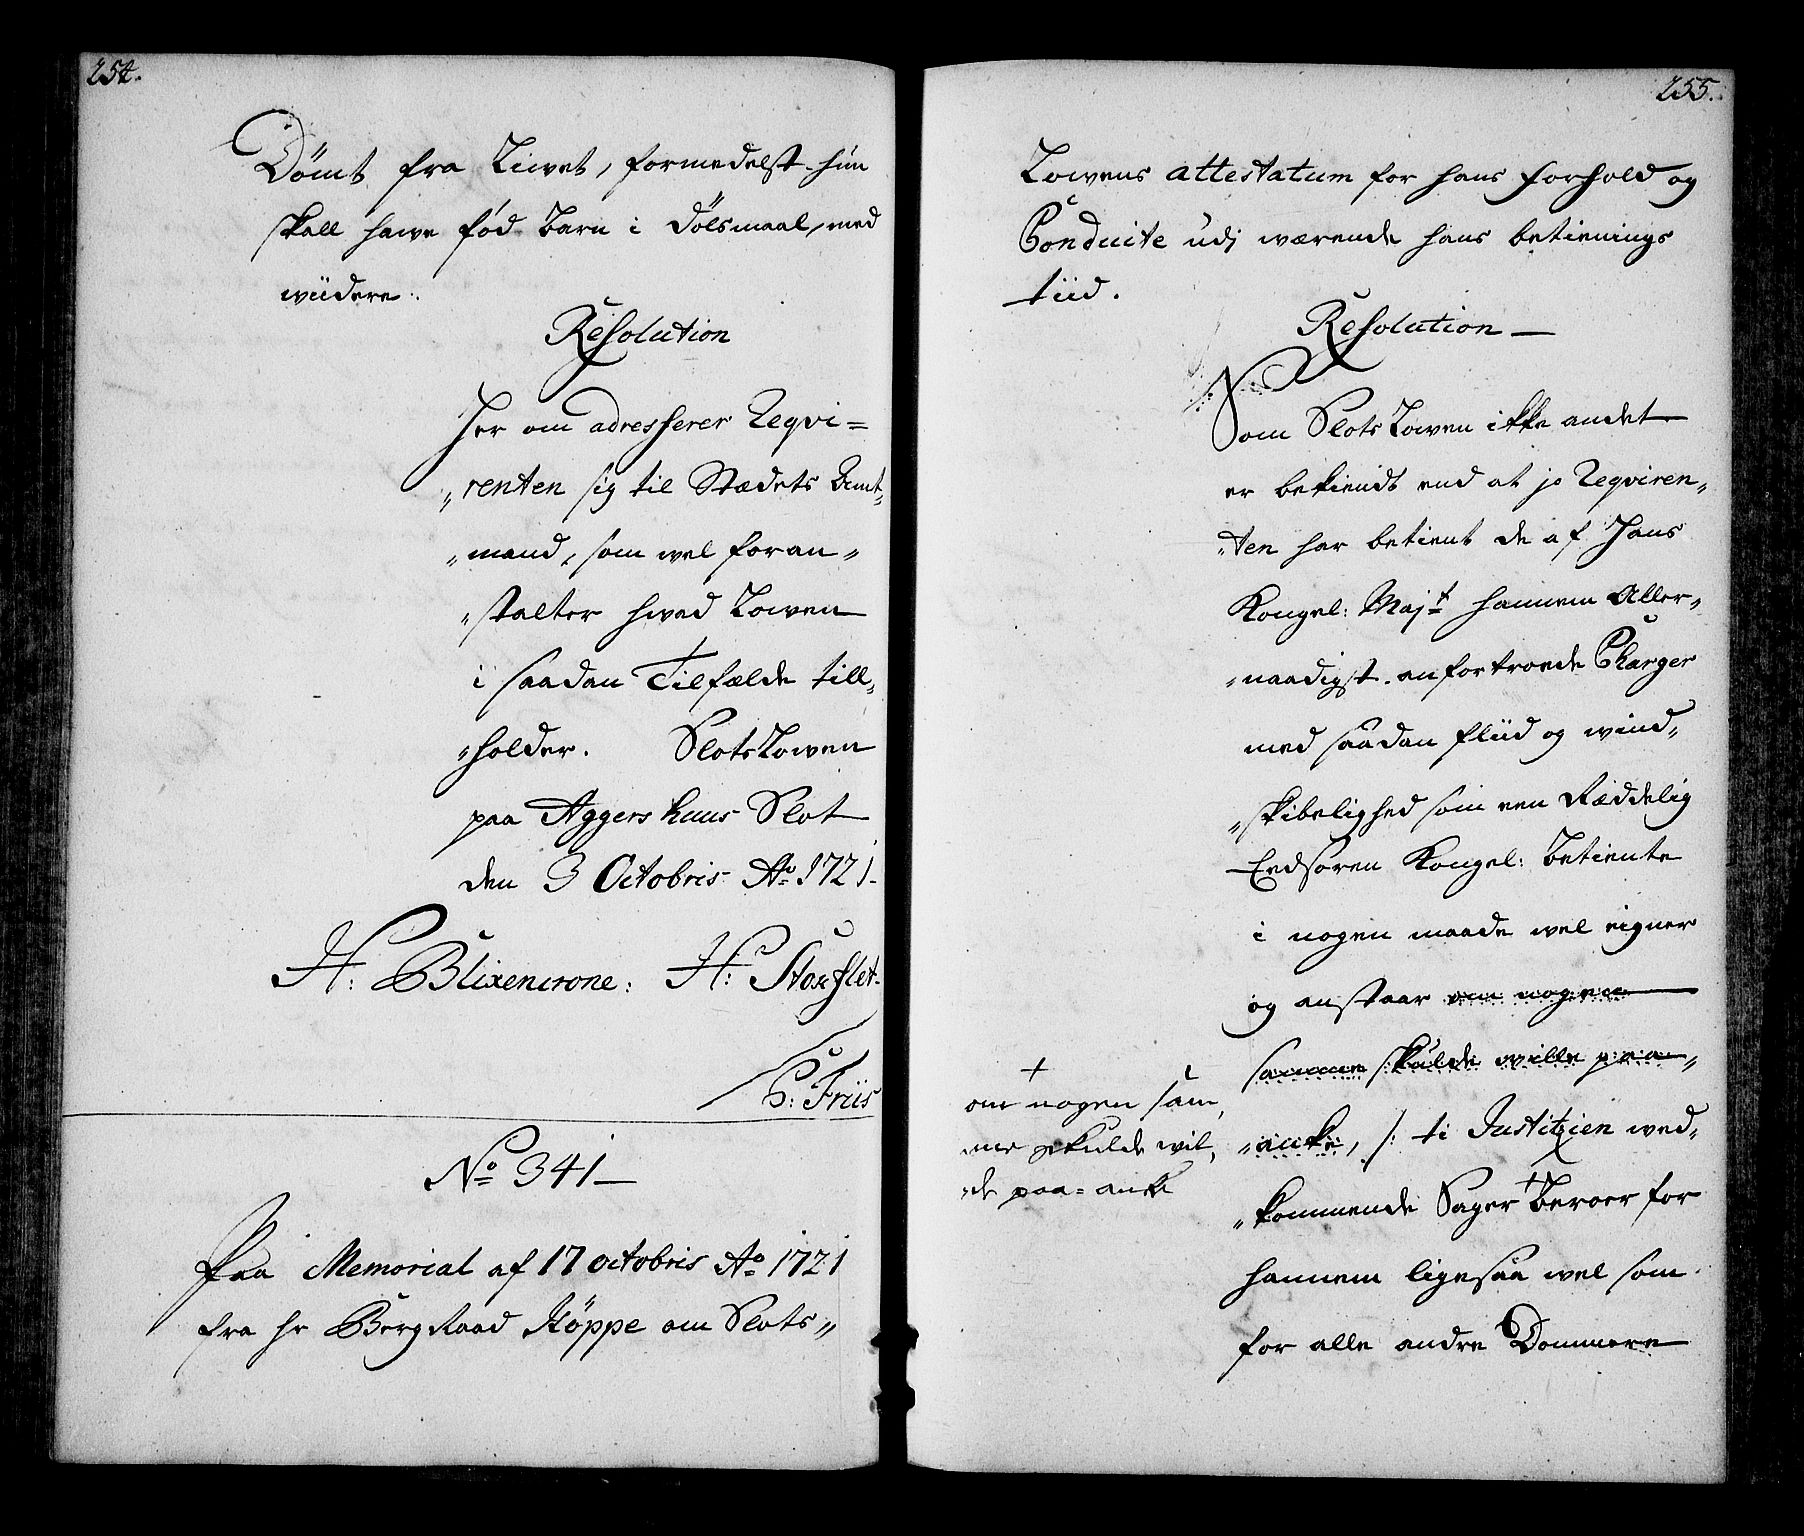 254.
Dömt fra Livet, formedelst hun
skall hawe fød Barn i Dölsmaal, med
wiidere.
Resolution
Her om adresserer Reqvi=
„renten sig til Stædets Amt„
„mand, som wel foran„
„stalter hwad Lowen
i saadan Tilfælde till„
„holder. SlotsLowen
paa Aggershuus Slot
den 3 Octobris Ao 1721.
H: Blixencrone: H: Storflet.
C: Friis
No 341
Paa Memorial af 17 octobris Ao 1721
fra hr BergRaad Köppe om Slots„
255.
Lowens attestatum for hans forhold og
Conduite udj wærende hans betienings
tiid.
Resolution
Som SlotsLowen ikke andet
er bekiendt end at jo Reqviren„
„ten har betient de af Hans
Kongel: Majt hannem Aller„
„naadigst anfortroede Charger
med saadan fliid og wind„
„skibelighed som een Ræddelig
Eedsoren Kongel: Betiente
i nogen maade wel eigner
og anstaar om nogen
samme skulde wille paa„
„anke, /: ti Justitzien wed„
„kommende Sager + Beroer for
hannem ligesaa wel som
for alle andre Dommere
+
om nogen sam„
me skulde wil„
de paa=anke